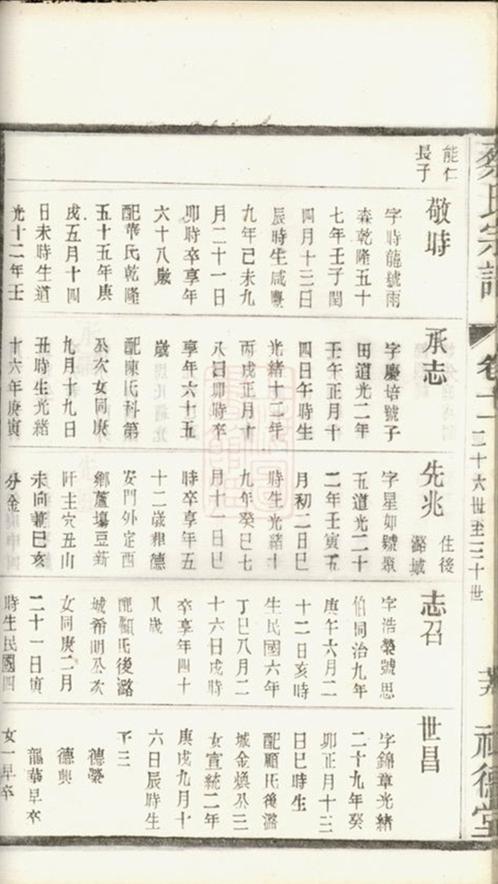 蔡氏宗譜
卷十二
二十六世至三十世
福德堂
能仁
長子
敬時
字時龍號雨
森乾隆五十
七年壬子閏
四月十三日
辰時生咸豐
九年己未九
月二十一日
卯時卒享年
六十八歲
配華氏乾隆
五十五年庚
戌五月十四
日未時生道
光十二年壬
承志
字慶培號子
田道光二年
壬午正月十
四日午時生
光緒十二年
丙戌正月十
八日卯時卒
享年六十五
歲
配陳氏科第
公次女同庚
九月十九日
丑時生光緒
十六年庚寅
先兆
住後
潞城
字星如號景
五道光二十
二年壬寅五
月初二日巳
時生光緒十
九年癸巳七
月十一日巳
時卒享年五
十二歲葬德
安門外定西
鄉蘆塲豆新
阡主穴丑山
未向兼巳亥
分金
志召
字浩榮號思
伯同治九年
庚午六月二
十二日亥時
生民國六年
丁巳八月二
十六日戌時
卒享年四十
八歲
配顧氏後潞
城希明公次
女同庚二月
二十一日寅
時生民國四
世昌
字錦章光緒
二十九年癸
卯正月十三
日巳時生
配顧氏後潞
城金煥公三
女宣統二年
庚戌九月十
六日辰時生
子三
德榮
德興
龍華早卒
女一早卒